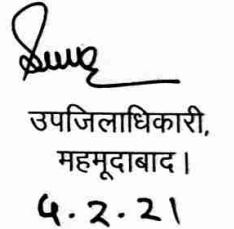 उपजिलाधिकारी,
महमूदाबाद।
4.2.21